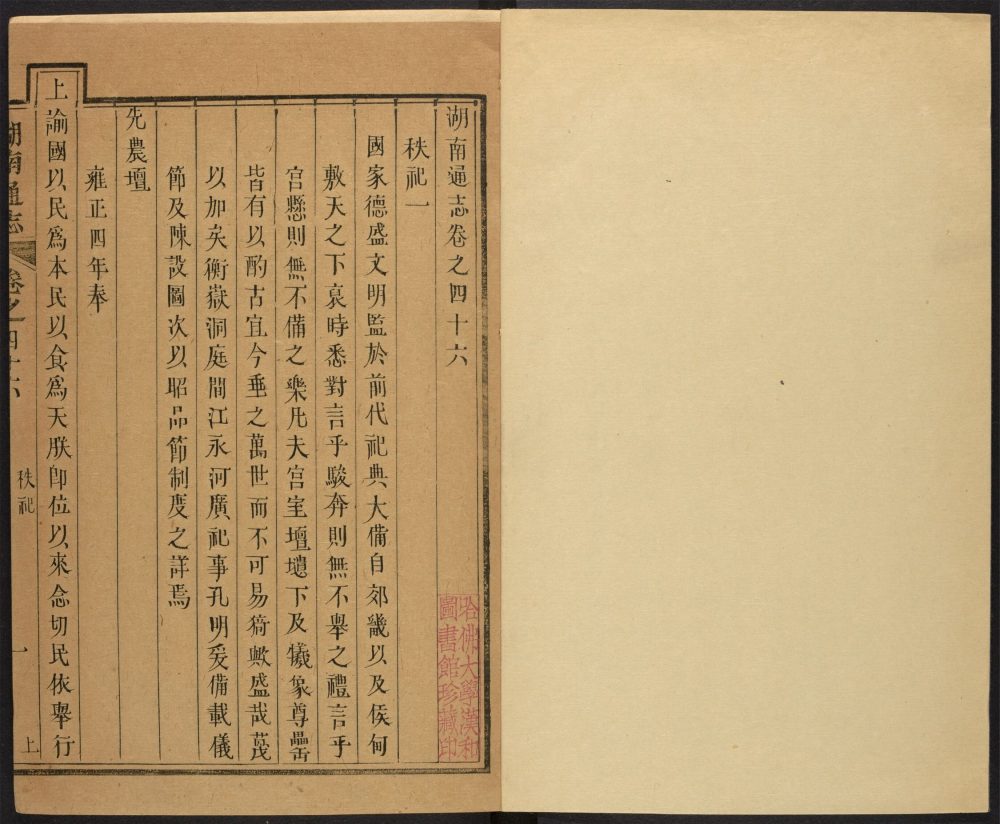 湖南通志卷之四十六
秩祀一
國家德盛文明監於前代祀典大備自郊畿以及侯甸
敷天之下裒時悉對言乎駿奔則無不舉之禮言乎
宫懸則無不備之樂凡夫宫室壇壝下及犧象尊罍
皆有以酌古宜今垂之萬世而不可易猗歟盛哉蔑
以加矣衡嶽洞庭間江永河廣祀事孔明爰備載儀
節及陳設圖次以昭品節制度之詳焉
先農壇
雍正四年奉
上諭國以民爲本民以食爲天朕卽位以來念切民依舉行
湖南通志
卷之四十六
秩祀
一
上
哈佛大學漢和
圖書館珍藏印